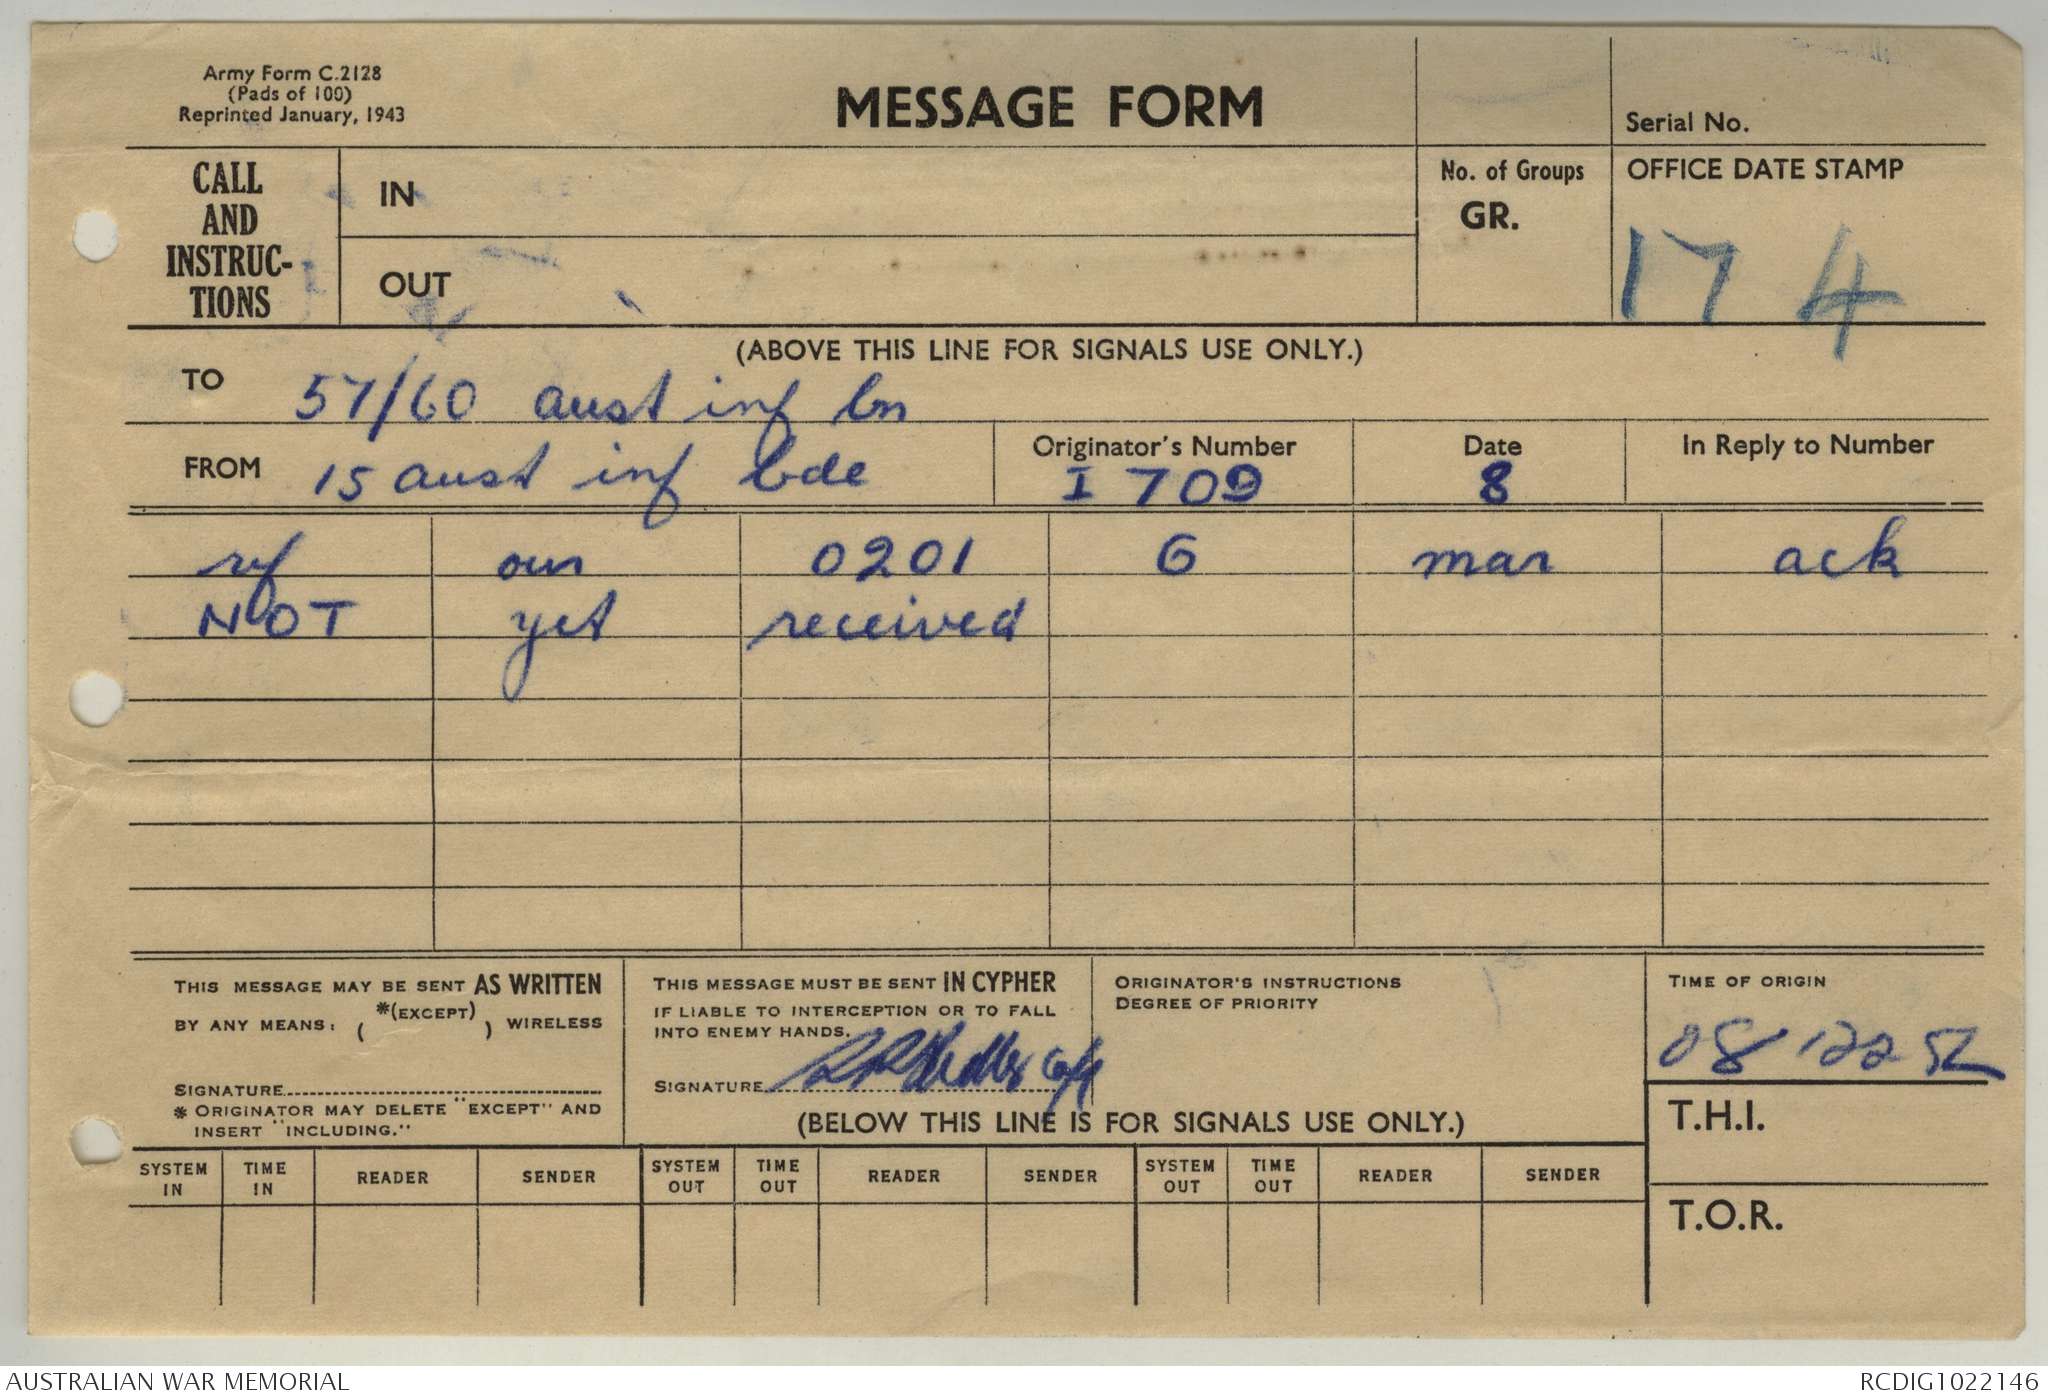 Army Form C.2128
(Pads of 100)
Reprinted January, 1943
MESSAGE FORM
Serial No.
CALL
AND
INSTRUC-
TIONS
IN
OUT
No. of Groups
GR.
OFFICE DATE STAMP
17 4
(ABOVE THIS LINE FOR SIGNALS USE ONLY.)
TO 57/60 aust inf bn
FROM 15 aust inf bde
Originator's Number
I 709
Date
8
In Reply to Number
ref our 0201 6 mar ack
NOT yet received
THIS MESSAGE MAY BE SENT AS WRITTEN
BY ANY MEANS: ( *(EXCEPT) ) WIRELESS
SIGNATURE
* ORIGINATOR MAY DELETE "EXCEPT" AND
INSERT "INCLUDING."
THIS MESSAGE MUST BE SENT IN CYPHER
IF LIABLE TO INTERCEPTION OR TO FALL
INTO ENEMY HANDS.
SIGNATURE
ORIGINATOR'S INSTRUCTIONS
DEGREE OF PRIORITY
TIME OF ORIGIN
(BELOW THIS LINE IS FOR SIGNALS USE ONLY.)
T.H.I.
SYSTEM IN TIME IN READER SENDER SYSTEM OUT TIME OUT READER SENDER SYSTEM OUT TIME OUT READER SENDER
T.O.R.
AUSTRALIAN WAR MEMORIAL
RCDIG1022146